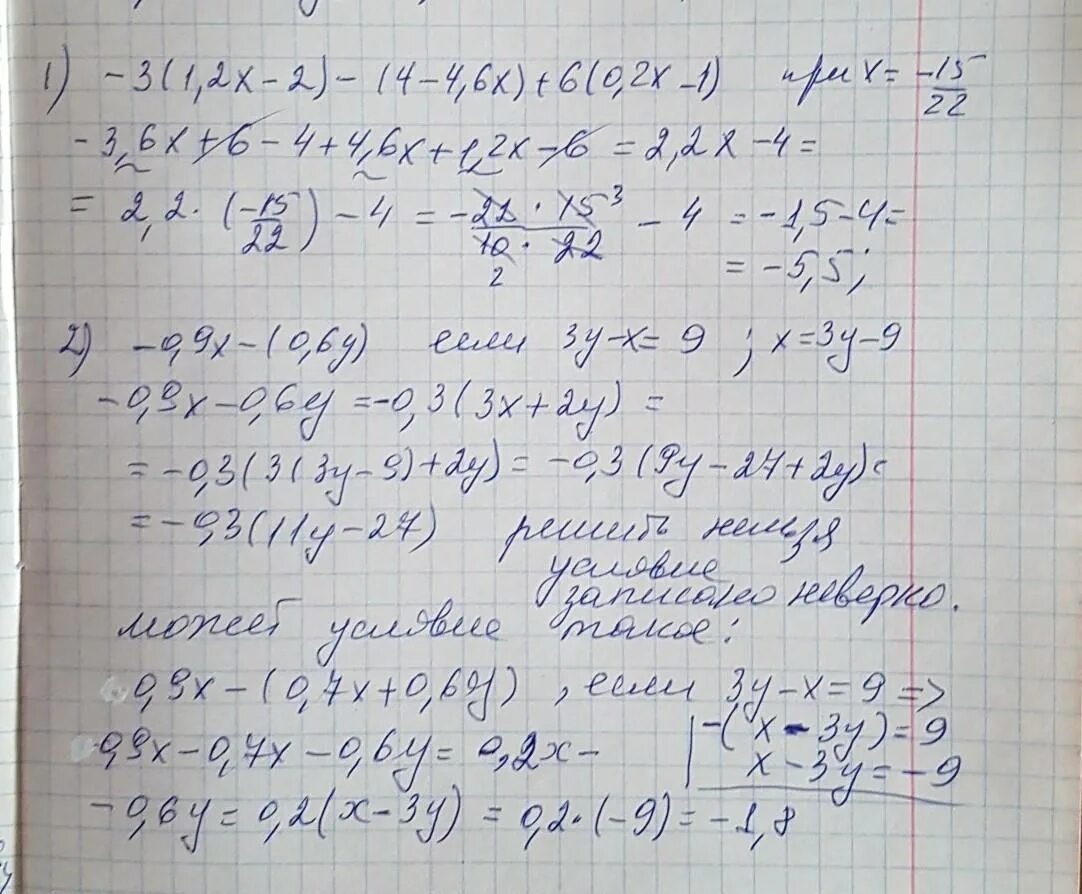 1) -3(1,2x-2)-(4-4,6x)+6(0,2x-1) при x= -15/22
-3,6x+6-4+4,6x+1,2x-6 = 2,2x-4=
= 2,2·(-15/22)-4 = -22·15³/10·22 - 4 = -1,5-4=
2
= -5,5;
2) -0,9x-(0,6y) если 3y-x=9 ; x=3y-9
-0,9x-0,6y=-0,3(3x+2y)=
=-0,3(3(3y-9)+2y)=-0,3(9y-27+2y)=
=-0,3(11y-27) решить нельзя
условие
записано неверно.
может условие такое:
0,9x-(0,7x+0,6y), если 3y-x=9 =>
-(x-3y)=9
0,9x-0,7x-0,6y=0,2x-
x-3y=-9
-0,6y=0,2(x-3y)=0,2·(-9)=-1,8